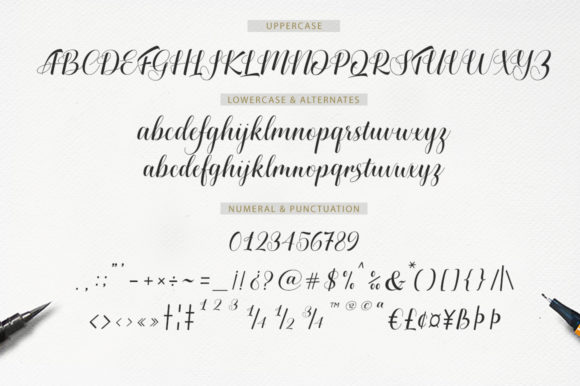 UPPERCASE
ABCDEFGHIJKLMNOPQRSTUVWXYZ
LOWERCASE & ALTERNATES
abcdefghijklmnopqrstuvwxyz
abcdefghijklmnopqrstuvwxyz
NUMERAL & PUNCTUATION
0123456789
.,:;"'-+×÷~=_¡!¿?@#$%^‰&*()[]{}/|\
<>‹›«»†¦‡¹²³¼½¾™®©ª€£¢¤¥ßÞþ